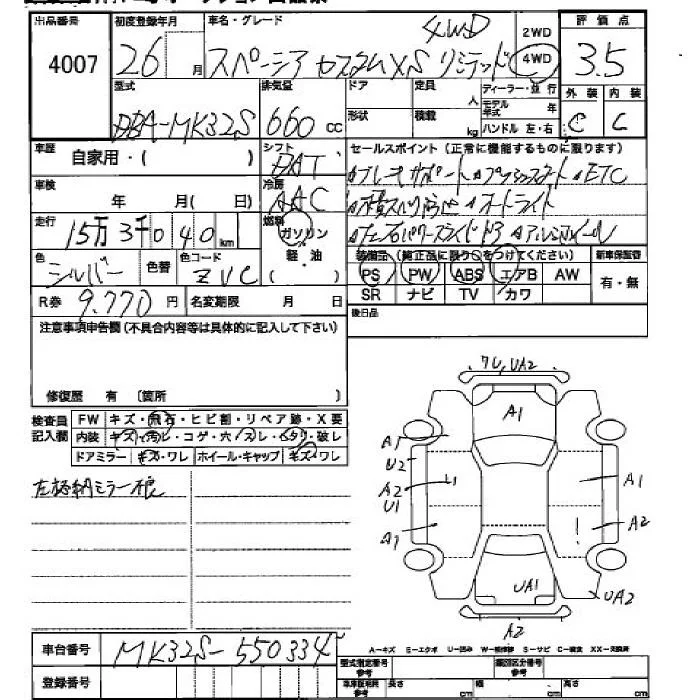 出品番号 初度登録年月 車名・グレード 評価点
4007 26 月 スペーシア カスタムXS リミテッド 4WD 2WD 4WD 3.5
型式 排気量 ドア 定員 人 ディーラー・並行 外装 内装
DBA-MK32S 660 cc 形状 積載 kg モデル年式 年 ハンドル 左・右 C C
車歴 自家用・( ) シフト DAT セールスポイント(正常に機能するものに限ります)
車検 年 月( 日) 冷房 AAC
走行 15万3千040km 燃料 ガソリン・軽油( )
色 シルバー 色替 色コード ZVC 装備品(純正品に限り○をつけてください) 新車保証書
PS PW ABS エアB AW 有・無
R券 9,770円 名変期限 月 日 SR ナビ TV カワ
注意事項申告欄(不具合内容等は具体的に記入して下さい) 後日品
修復歴 有 〔箇所 〕
検査員記入欄 FW キズ・飛石・ヒビ割・リペア跡・X要
内装 キズ・汚レ・コゲ・穴・スレ・ヘタリ・破レ
ドアミラー キズ・ワレ ホイール・キャップ キズ・ワレ
ワレ,UA2
A1
A1
U2
A2
U1
L1
A1
A1
!
A2
UA1
UA2
A2
車台番号 MK32S-550334
A-キズ E-エクボ U-凹み W-補修跡 S-サビ C-腐食 XX-交換済
登録番号 型式指定番号 参考 類別区分番号 参考
長さ cm 幅 cm 高さ cm